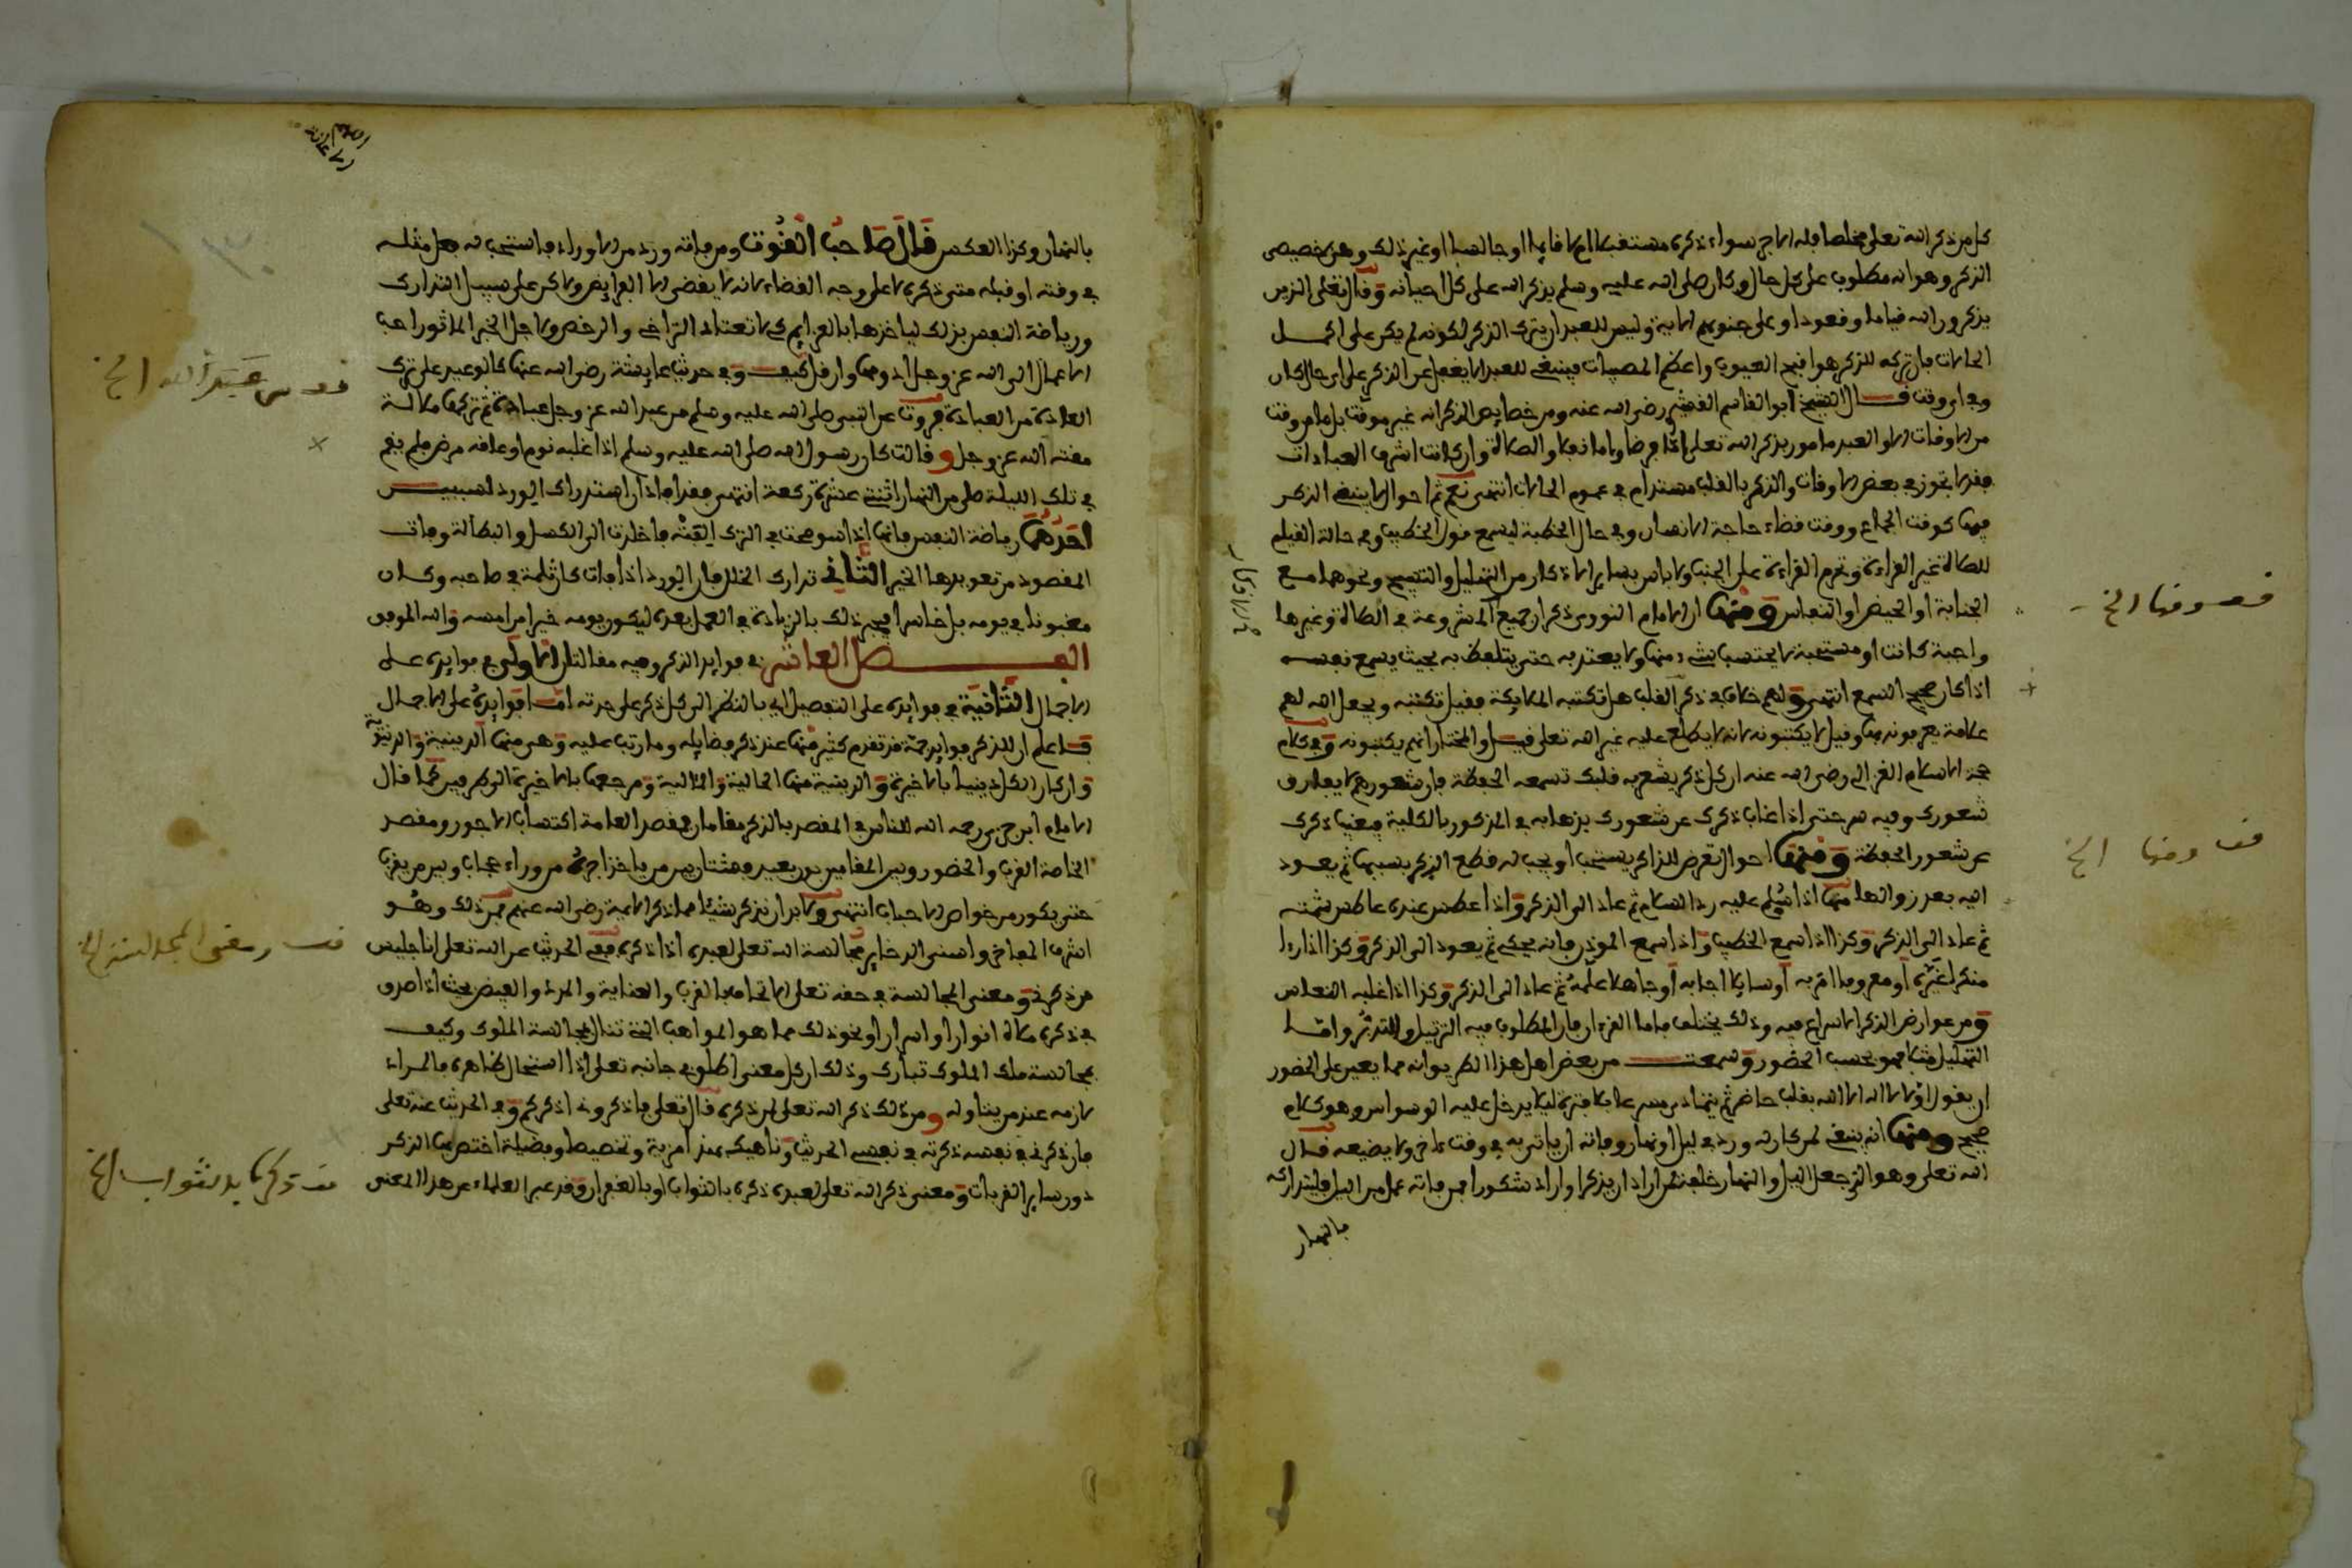 كل من ذكر الله تعالى مخلصا فله الاجر سواء ذكره مستقبلا ام لا قايما او جالسا او غير ذلك وهو خصيصى
الذكر وهو انه مطلوب على كل حال وكان صلى الله عليه وسلم يذكر الله على كل احيانه وقال تعلى الذين
يذكرون الله قياما وقعودا وعلى جنوبهم الاية وليس للعبد ان يترك الذكر لكونه لم يكن على اكمل
الحالات فان تركه للذكر هو اقبح العيوب واعظم المصيبات فينبغي للعبد الا يغفل عن الذكر على اي حال كان
وفي اي وقت قال الشيخ ابو القاسم القشيري رضي الله عنه ومن خصايص الذكر انه غير موقت بل ما من وقت
من الاوقات الا والعبد مامور بذكر الله تعلى اما فرضا واما ندبا والصلاة وان كانت اشرف العبادات
فقد لا تجوز في بعض الاوقات والذكر بالقلب مستدام في عموم الحالات انتهى نعم ثم احوال لا ينبغي الذكر
فيها كوقت الجماع ووقت قضاء حاجة الانسان وفي حال الخطبة ليسمع قول الخطيب وفي حالة القيام
للصلاة غير القراءة وتحرم القراءة على الجنب ولا باس بساير الاذكار من التهليل والتسبيح ونحوهما مع
الجنابة او الحيض او النفاس ومنها ان الامام النووي ذكر ان جميع المشروعة في الصلاة وغيرها
واجبة كانت او مستحبة لا يحتسب بشيء منها ولا يعتد به حتى يتلفظ به بحيث يسمع نفسه
اذا كان صحيح السمع انتهى ولهم خلاف في ذكر القلب هل تكتبه الملايكة فقيل تكتبه ويجعل الله لهم
علامة يعرفونه بها وقيل لا يكتبونه لانه لا يطلع عليه غير الله تعلى قيل والمختار انهم يكتبونه وفي كلام
حجة الاسلام الغزالي رضي الله عنه ان كل ذكر يشعر به قلبك تسمعه الحفظة فان شعورهم يقارن
شعورك وفيه سر حتى اذا غاب ذكرك عن شعورك بذهابه في المذكور بالكلية فيغيب ذكرك
عن شعور الحفظة ومنها احوال تعرض للذاكر يستحب او يجب له قطع الذكر بسببها ثم يعود
اليه بعد زوالها منها اذا سلم عليه رد السلام ثم عاد الى الذكر واذا عطس عنده عاطس شمته
ثم عاد الى الذكر وكذا اذا سمع الخطيب واذا سمع الموذن فانه يحكي ثم يعود الى الذكر وكذا اذا راى
منكرا غيره او معروفا امر به او سايلا اجابه او جاهلا علمه ثم عاد الى الذكر وكذا اذا غلبه النعاس
ومن عوارض الذكر الاسراع فيه وذلك يختلف فاما القرءان فان المطلوب فيه الترتيل والتدبر واما
التهليل مثلا فهو بحسب الحضور وسمعت من بعض اهل هذا الطريق انه مما يعين على الحضور
ان يقول اولا لا اله الا الله بقلب حاضر ثم يتمادى مسرعا بلا فترة ليلا يدخل عليه الوسواس وهو كلام
صحيح ومنها انه ينبغي لمن كان له ورد في ليل او نهار وفاته ان ياتي به في وقت ءاخر ولا يضيعه قال
الله تعلى وهو الذي جعل اليل والنهار خلفة لمن اراد ان يذكر او اراد شكورا فمن فاته عمل من اليل فليتداركه
بالنهار
قف ومنها الخ
قف ومنها الخ
بالنهار وكذا العكس قال صاحب القوت ومن فاته ورد من الاوراد فاستحب له فعل مثله
في وقته او قبله متى ذكره لا على وجه القضاء لانه لا يقضى الا الفرايض ولاكن على سبيل التدارك
ورياضة النفس بذلك لياخذها بالعزايم كي لا تعتاد التراخي والرخص ولاجل الخبر الماثور احب
الاعمال الى الله عز وجل ادومها وان قل كيف وفي حديث عايشة رضي الله عنها كالوعيد على ترك
العادة من العبادة فروت عن النبي صلى الله عليه وسلم من عبد الله عز وجل عبادة ثم تركها ملالة
مقته الله عز وجل وقالت كان رسول الله صلى الله عليه وسلم اذا غلبه نوم او عاقه مرض فلم يقم
في تلك الليلة صلى من النهار اثنتي عشرة ركعة انتهى فقد افاد ان استدراك الورد لسببين
احدهما رياضة النفس فانها اذا سومحت في الترك الفته فاخلدت الى الكسل والبطالة وفات
المقصود من تعويدها الخير الثاني تدارك الخلل فان الورد اذا فات كان ثلمة في صاحبه وكان
مغبونا في يومه بل خاسرا فيجبر ذلك بالزيادة في العمل بعده ليكون يومه خيرا من امسه والله الموفق
الفصل العاشر في فوايد الذكر وفيه مقالتان الاولى في فوايده على
الاجمال الثانية في فوايده على التفصيل اي بالنظر الى كل ذكر على حدته اما فوايده على الاجمال
فاعلم ان للذكر فوايد جمة قد تقدم كثير منها عند ذكر فضايله وما رتب عليه وهو منها الدينية والدنيوية
وان كان الكل دينيا بالاخرة والدينية منها الحالية والمثالية ومرجعها بالاخرة الى طرفين كما قال
الامام ابن جزي رحمه الله للناس في المقصد بالذكر مقامان فمقصد العامة اكتساب الاجور ومقصد
الخاصة القرب والحضور وبين المقامين بون بعيد فشتان بين من ياخذ اجره من وراء حجاب وبين من يقرب
حتى يكون من خواص الاحباب انتهى ولا بد ان نذكر شيئا مما ذكر الايمة رضي الله عنهم فمن ذلك وهو
اشرف المفاخر واسنى الذخاير مجالسة الله تعلى لعبده اذا ذكره ففي الحديث عن الله تعلى انا جليس
من ذكرني ومعنى المجالسة في حقه تعلى الاتحاف بالقرب والعناية والمدد والفيض بحيث اذا صدق
في ذكره ملاه انوارا واسرارا ونحو ذلك مما هو المواهب التي تنال بمجالسة الملوك وكيف
بمجالسة ملك الملوك تبارك وذلك ان كل معنى اطلق في جانبه تعلى اذا استحال ظاهره فالمراد
لازمه عند من يتاوله ومن ذلك ذكر الله تعلى لمن ذكره قال تعلى فاذكروني اذكركم وفي الحديث عنه تعلى
فان ذكرني في نفسه ذكرته في نفسي الحديث وناهيك بهذا مزية وتخصيصا وفضيلة اختص بها الذكر
دون ساير القربات ومعنى ذكر الله تعلى لعبده ذكره بالثواب او بالغفران وقد عبر العلماء عن هذا المعنى
قف من عبد الله الخ
قف ومعنى المجالسة الخ